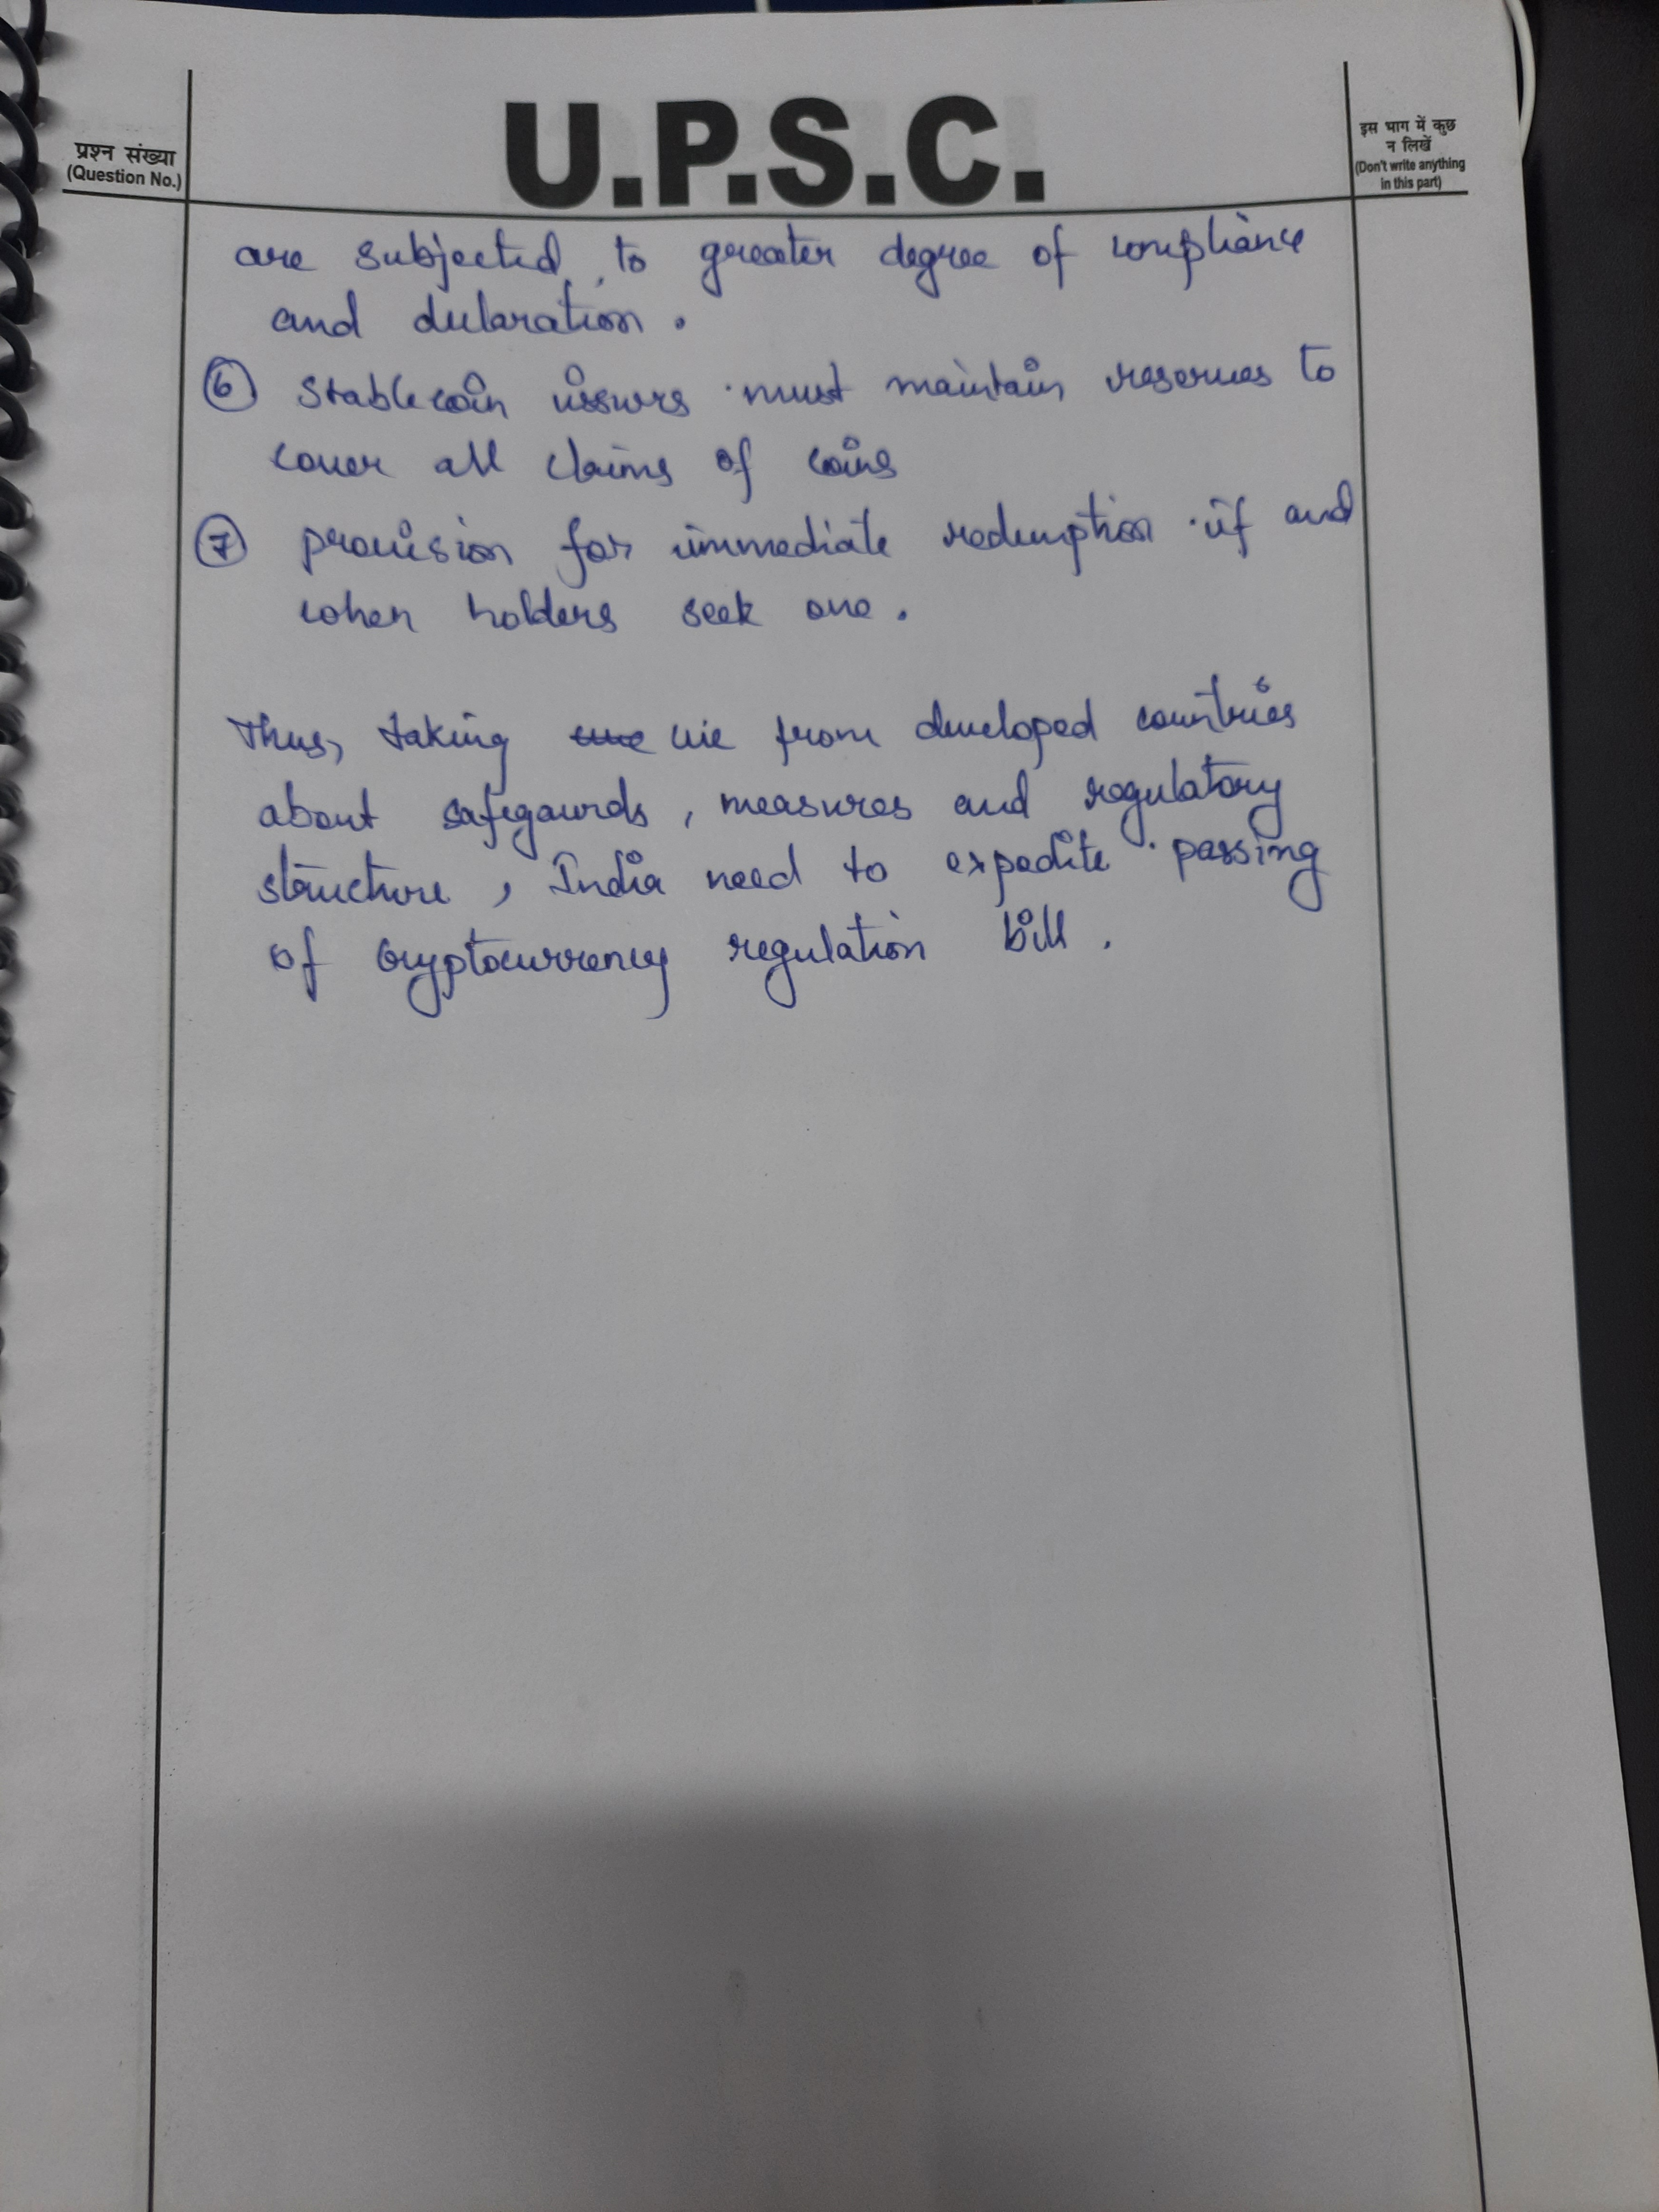 प्रश्न संख्या
(Question No.)
U.P.S.C.
इस भाग में कुछ
न लिखें
(Don't write anything
in this part)
are subjected to greater degree of compliance
and declaration.
6 Stablecoin issuers must maintain reserves to
cover all claims of coins
7 provision for immediate redemption if and
when holders seek one.
Thus, taking cue from developed countries
about safegaurds, measures and regulatory
structure, India need to expedite passing
of cryptocurrency regulation bill.